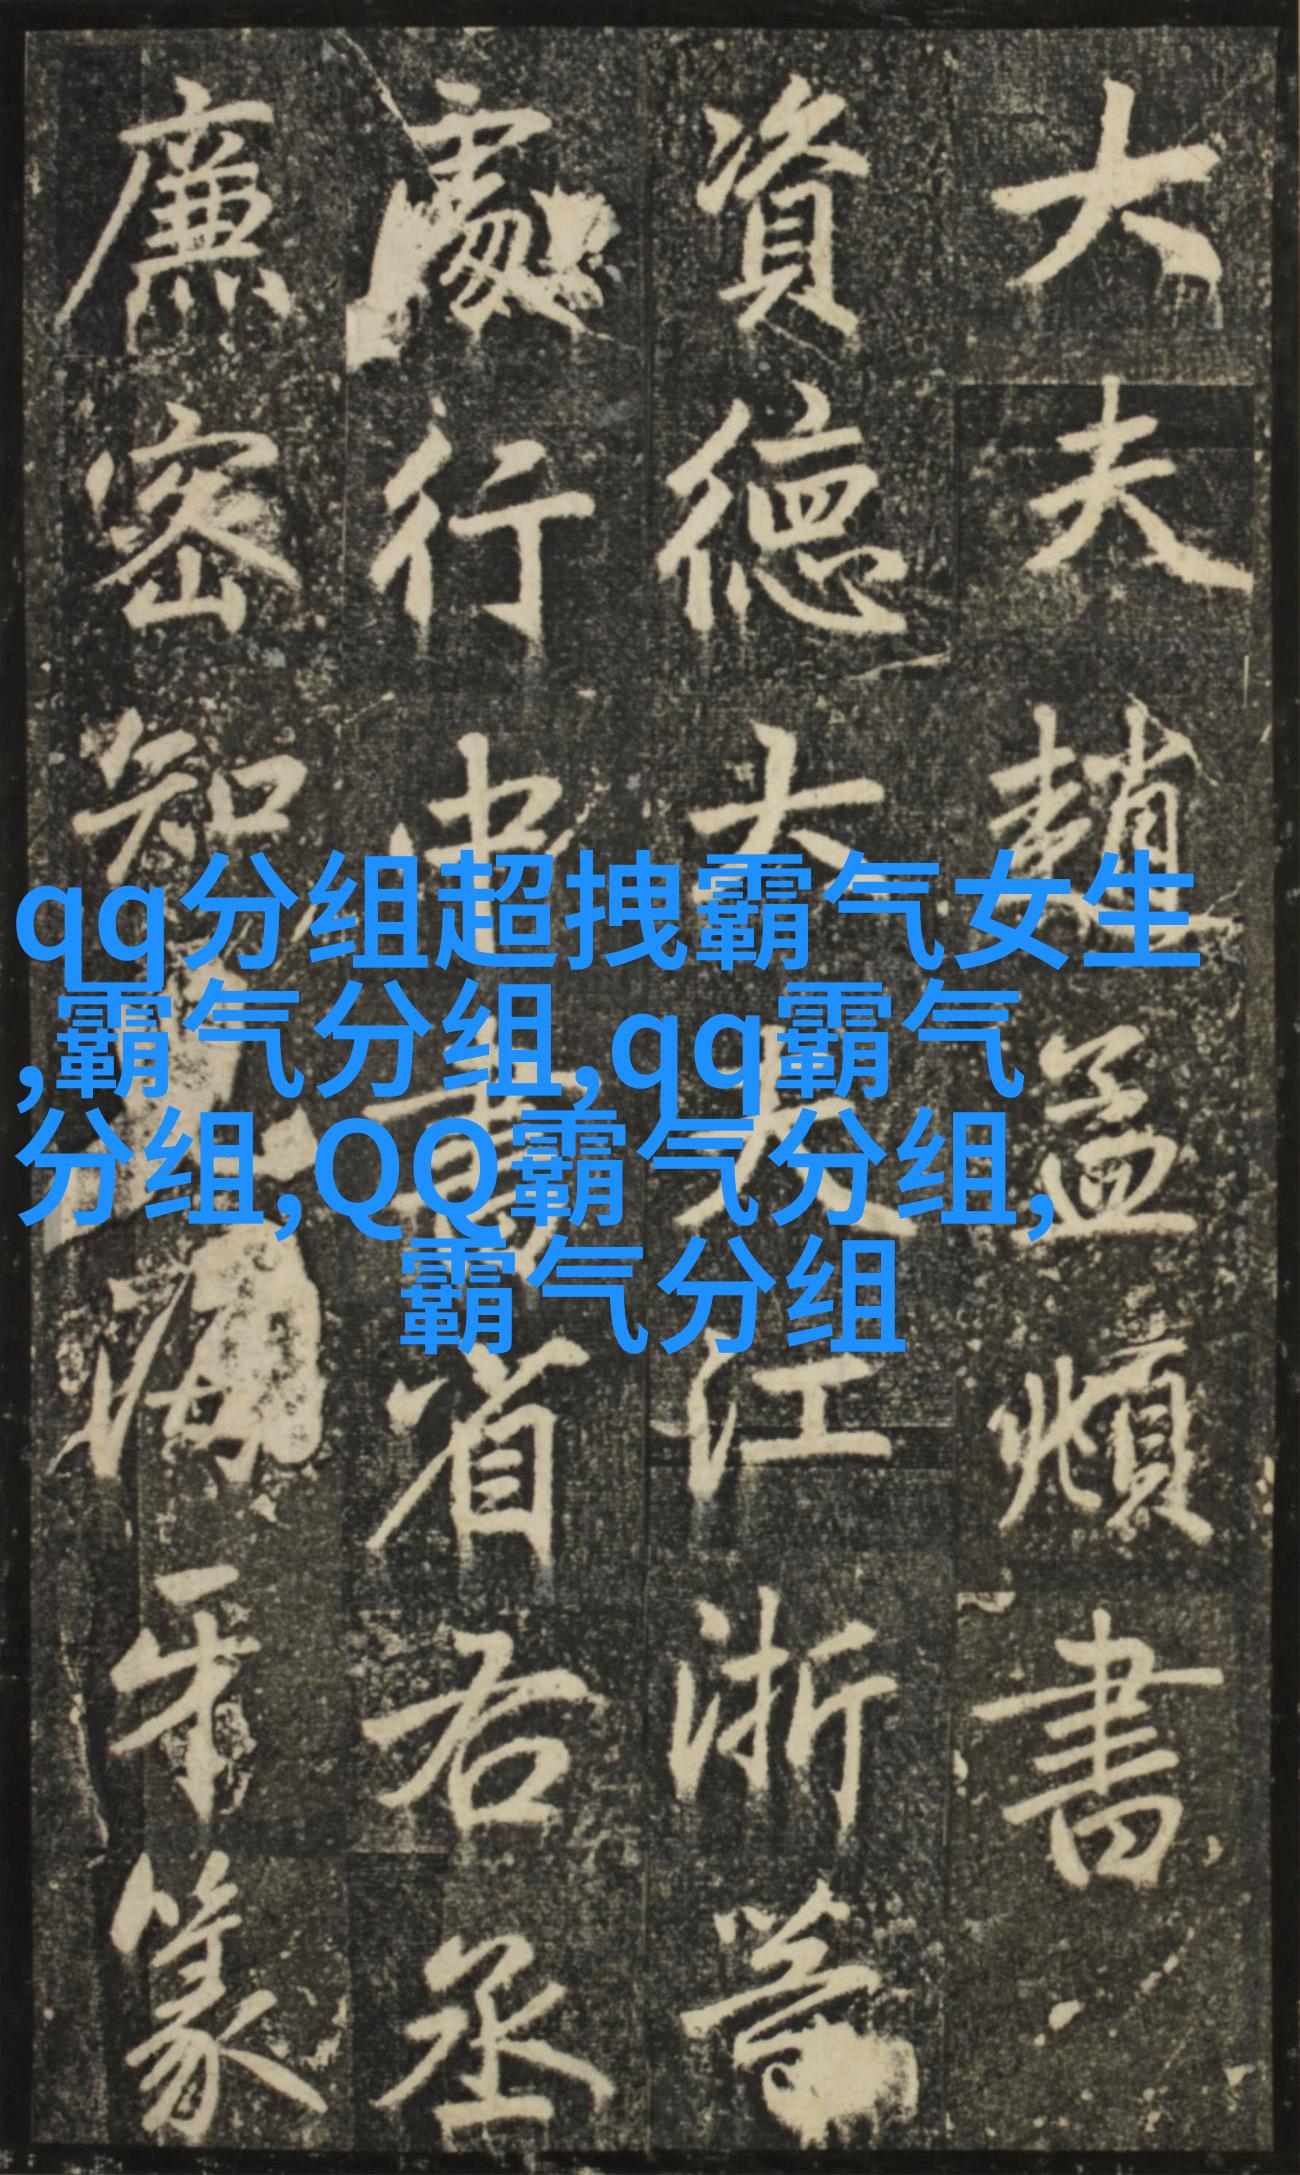 大夫趙孟頫書
資德大夫江浙等
處行中書省右丞
廉密知海牙篆
qq分组超拽霸气女生
,霸气分组,qq霸气
分组,QQ霸气分组,
霸气分组